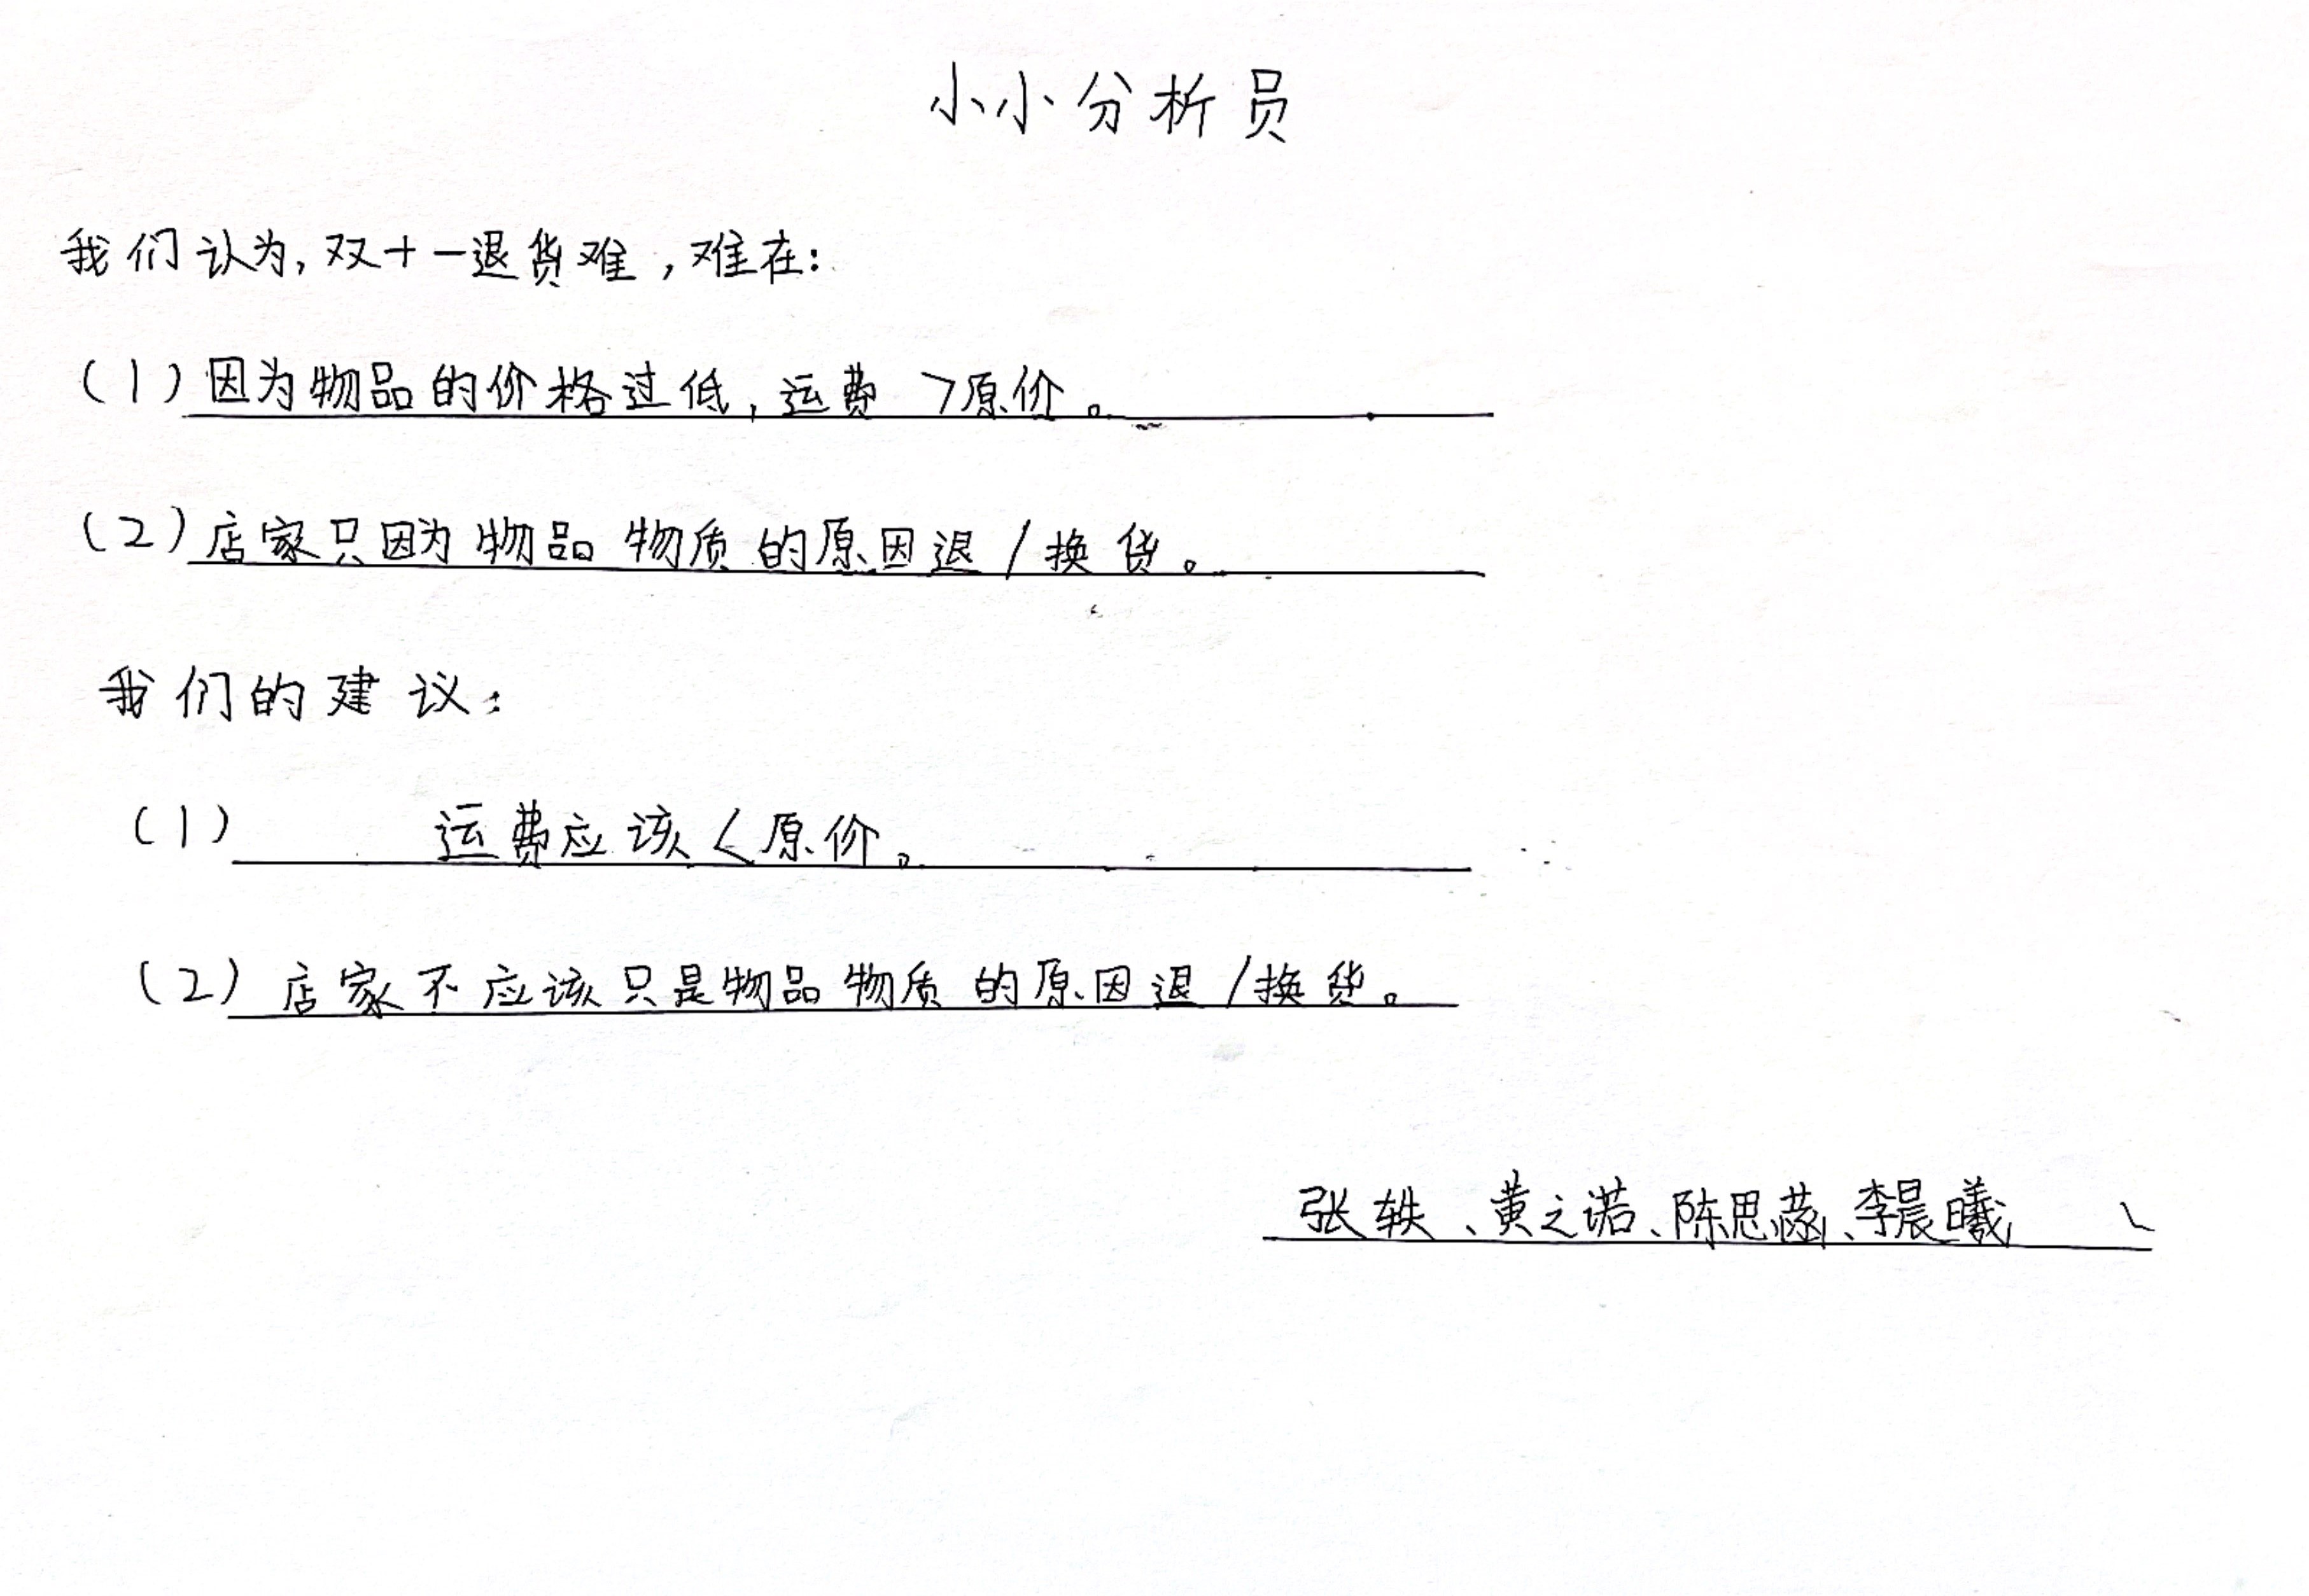 小小分析员
我们认为,双十一退货难,难在:
(1)因为物品的价格过低,运费>原价。
(2)店家只因为物品物质的原因退/换货。
我们的建议:
(1)运费应该<原价。
(2)店家不应该只是物品物质的原因退/换货。
张轶、黄之诺、陈思涵、李晨曦